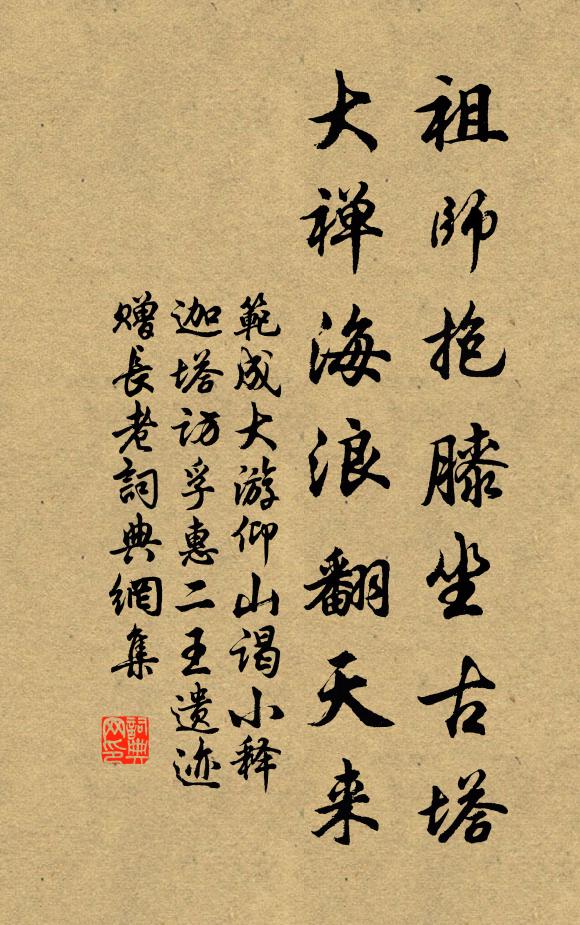 祖師抱膝坐古塔
大禅海浪翻天来
範成大游仰山谒小释
迦塔访孚惠二王遗迹
赠長老詞典網集
詞典
网印